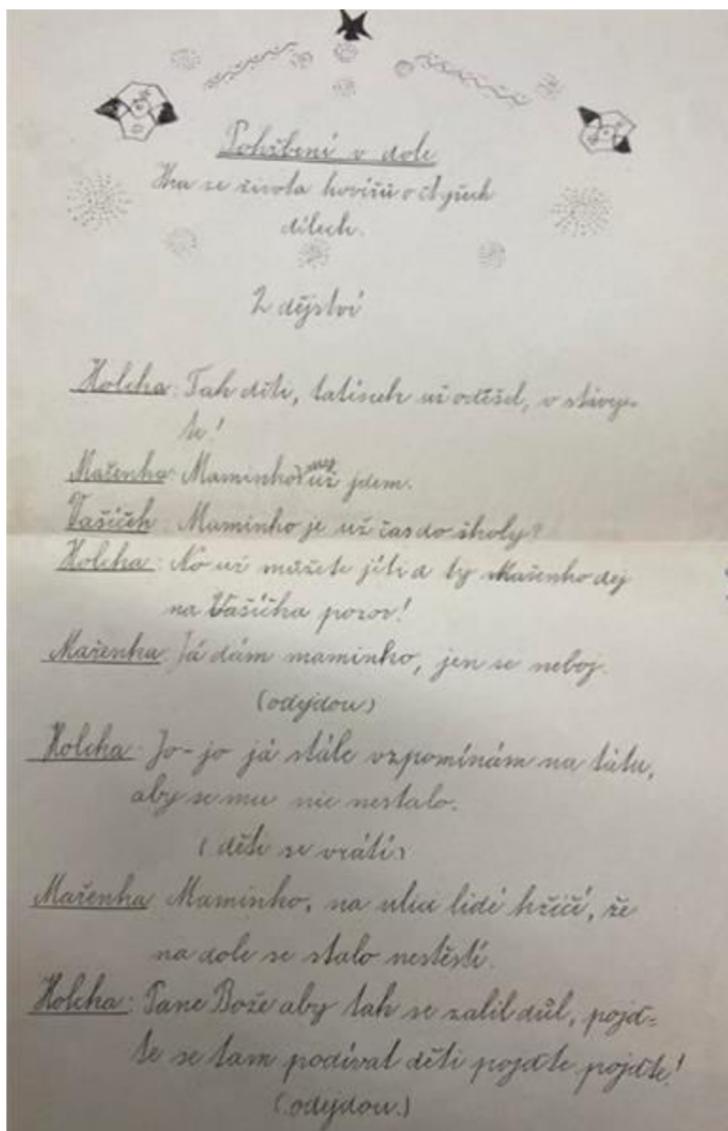 Pohřbení v dole
Hra ze života havířů o čtyřech
dílech.
2 dějství
Holcha: Tak děti, tatínek už odešel, v stávej-
te!
Mařenka: Maminko my už jdem.
Vašíček: Maminko je už čas do školy?
Holcha: No už můžete jíti a ty Mařenko dej
na Vašíčka pozor!
Mařenka: Já dám maminko, jen se neboj.
(odejdou)
Holcha: Jo-jo já stále vzpomínám na tátu,
aby se mu nic nestalo.
(děti se vrátí)
Mařenka Maminko, na ulici lidé křičí, že
na dole se stalo neštěstí.
Holcha: Pane Bože aby tak se zalil důl, pojď-
te se tam podívat děti pojďte pojďte!
(odejdou.)